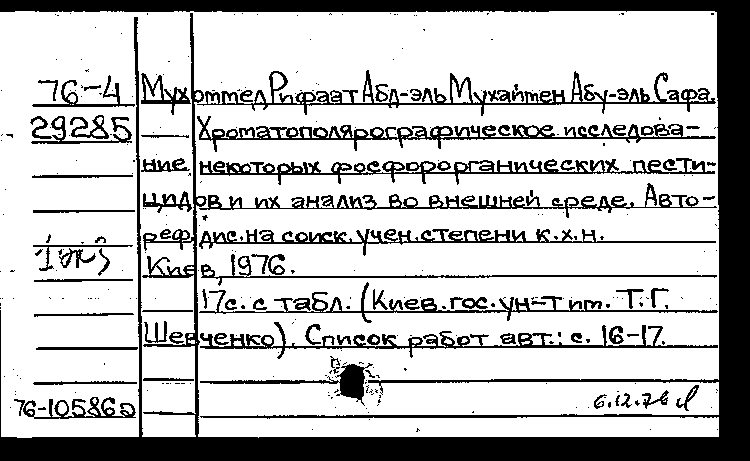 76-4 Мухоммед Рифаат Абд-эль Мухаймен Абу-эль Сафа.
29285 — Хроматополярографическое исследова-
ние некоторых фосфорорганических пести-
цидов и их анализ во внешней среде. Авто-
реф. дис. на соиск. учен. степени к.х.н.
Киев, 1976.
17с. с табл. (Киев. гос. ун-т им. Т.Г.
Шевченко). Список работ авт.: с. 16-17.
76-10586
6.12.76